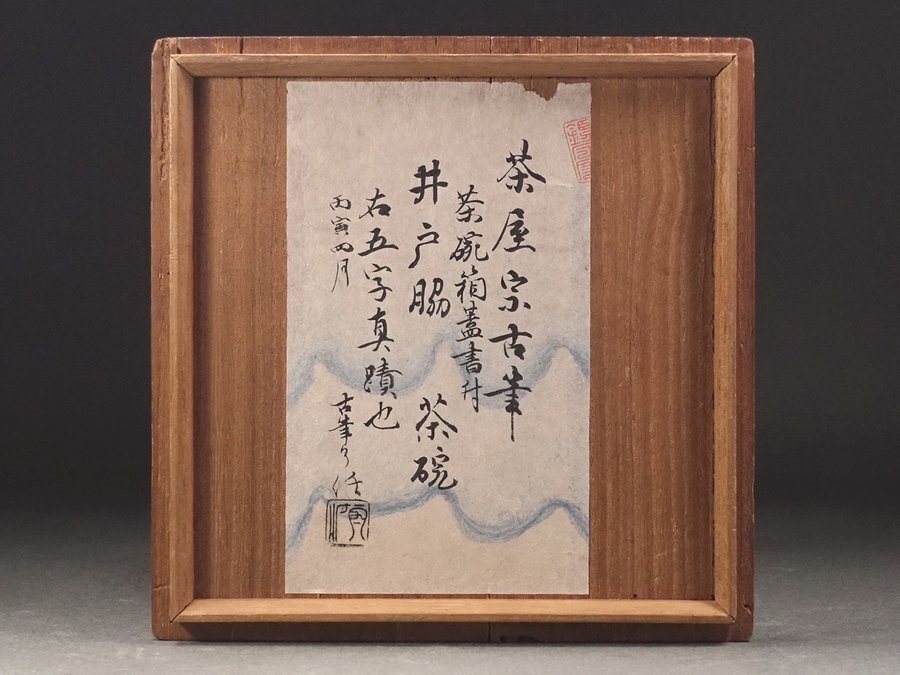 茶屋宗古筆
茶碗箱蓋書付
井戸脇 茶碗
右五字真蹟也
丙寅四月
古筆了任